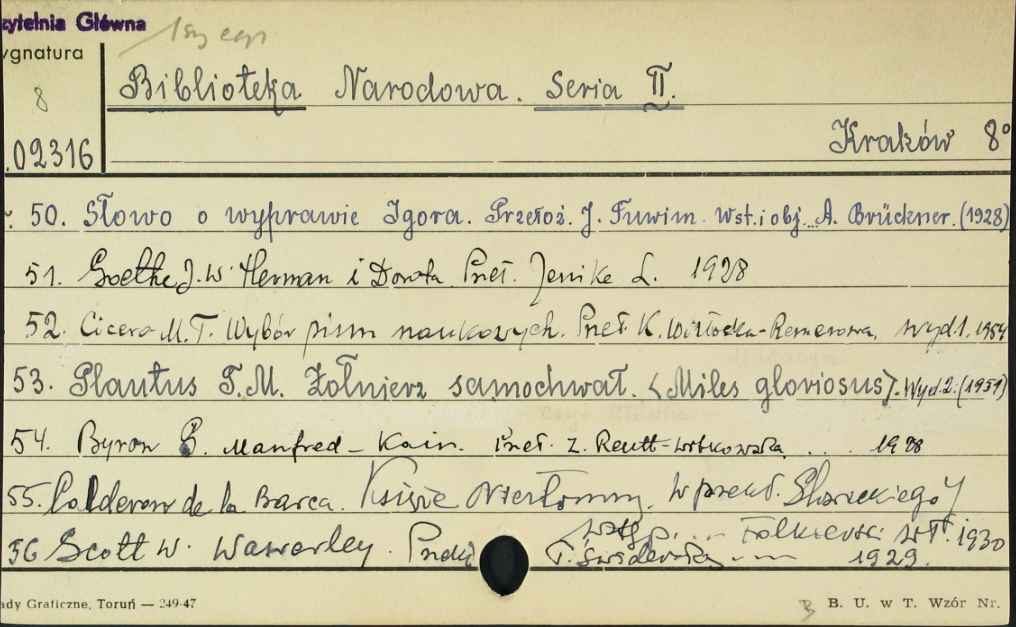 zytelnia Główna
1szy egz
ygnatura
8
Biblioteka Narodowa. Seria II.
.02316
Kraków 8°
50. Słowo o wyprawie Igora. Przełoż. J. Tuwim. Wst. i obj. A. Brückner. (1928)
51. Goethe J. W. Herman i Dorota. Przeł. Jenike L. 1928
52. Cicero M. T. Wybór pism naukowych. Przeł. K. Wisłocka-Remerowa, wyd 1. 1954
53. Plautus T. M. Żołnierz samochwał. (Miles gloriosus). Wyd. 2. (1951)
54. Byron G. Manfred - Kain. Przeł. Z. Reutt-Witkowska ... 1928
55. Calderon de la Barca. Książe Niezłomny. W przekł. Słowackiego
Wstęp ... Folkierski Wł. 1930
56 Scott W. Waverley. Przekł. T. Świderska --- 1929.
ady Graficzne, Toruń — 249-47
B B. U. w T. Wzór Nr.